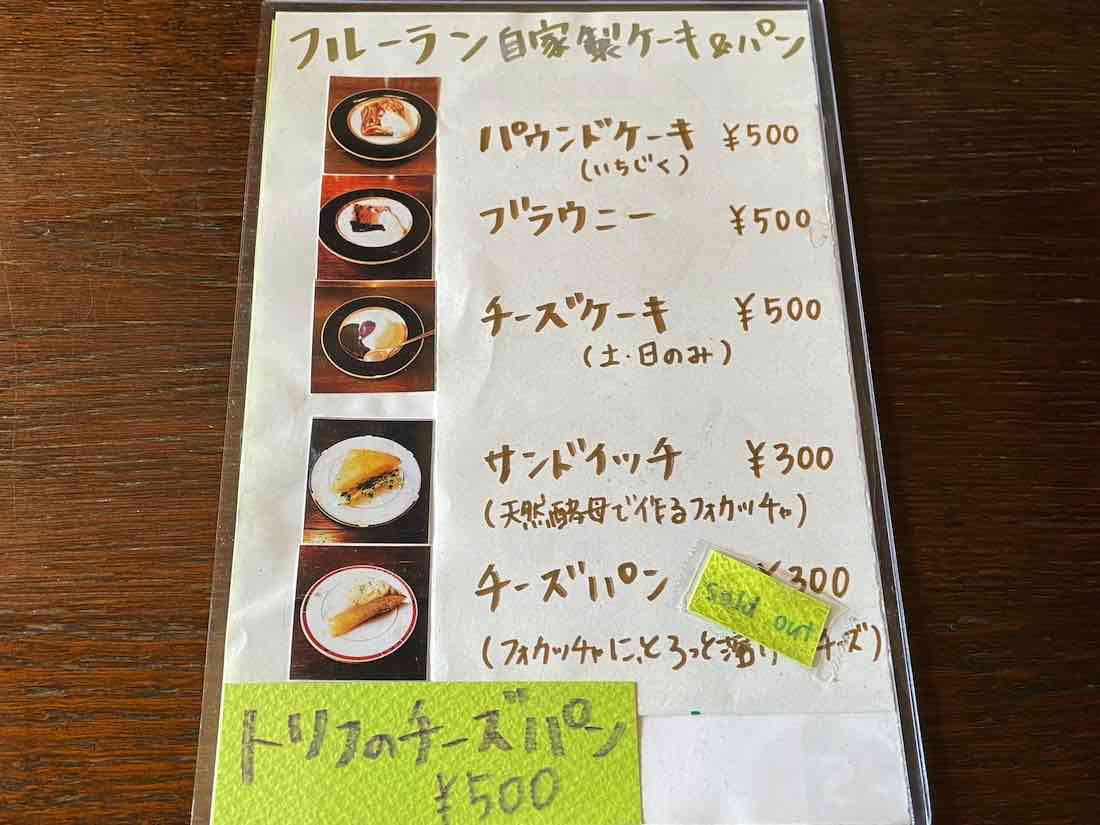 フルーラン自家製ケーキ&パン
パウンドケーキ ¥500
(いちじく)
ブラウニー ¥500
チーズケーキ ¥500
(土・日のみ)
サンドイッチ ¥300
(天然酵母で作るフォカッチャ)
チーズパン ¥300
sold out
(フォカッチャに、とろっと溶け チーズ)
トリフのチーズパン
¥500